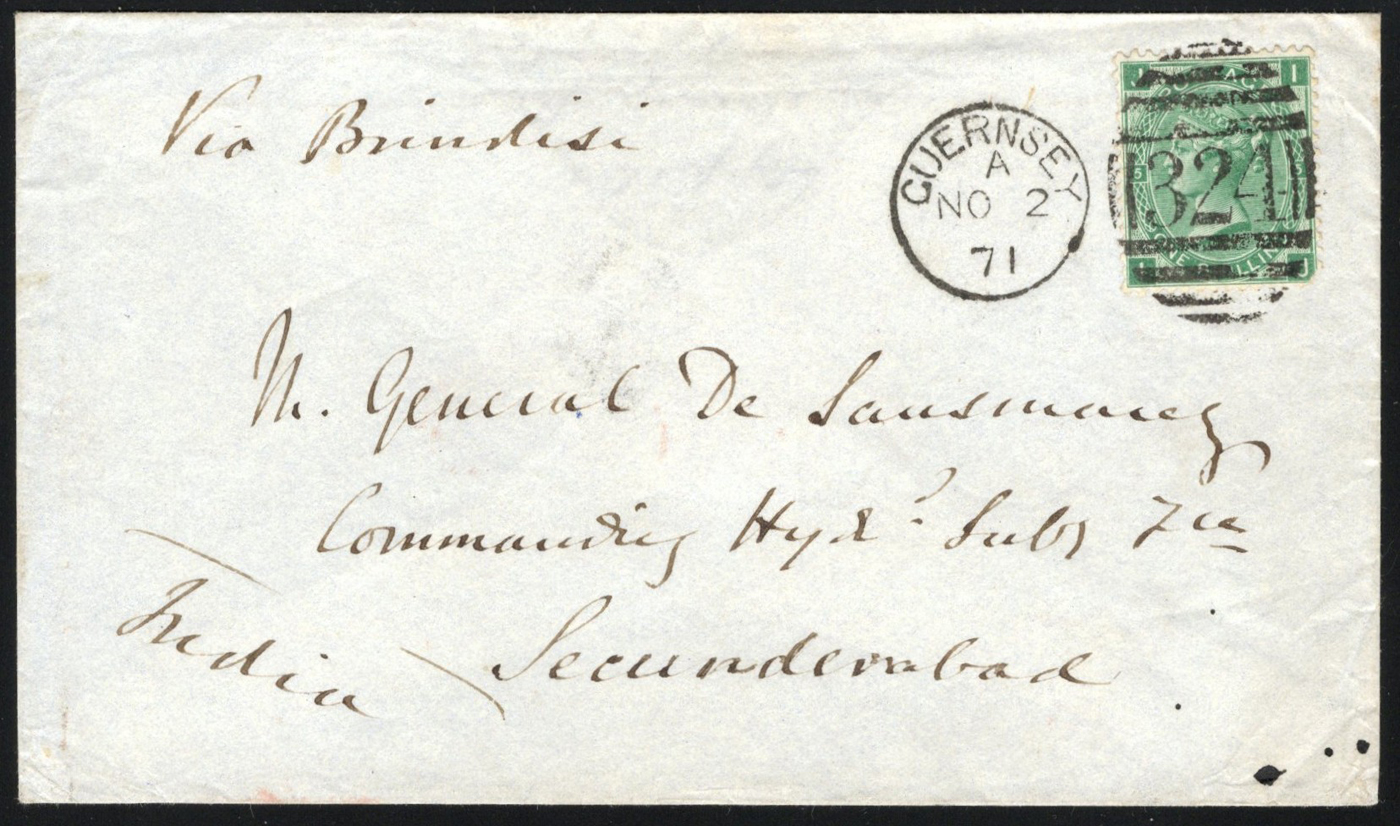 Via Brindisi
GUERNSEY
A
NO 2
71
324
J I
5
ONE SHILLING
I J
M. General De Sausmarez
Commanding Hyd. Subs
India
Secunderabad